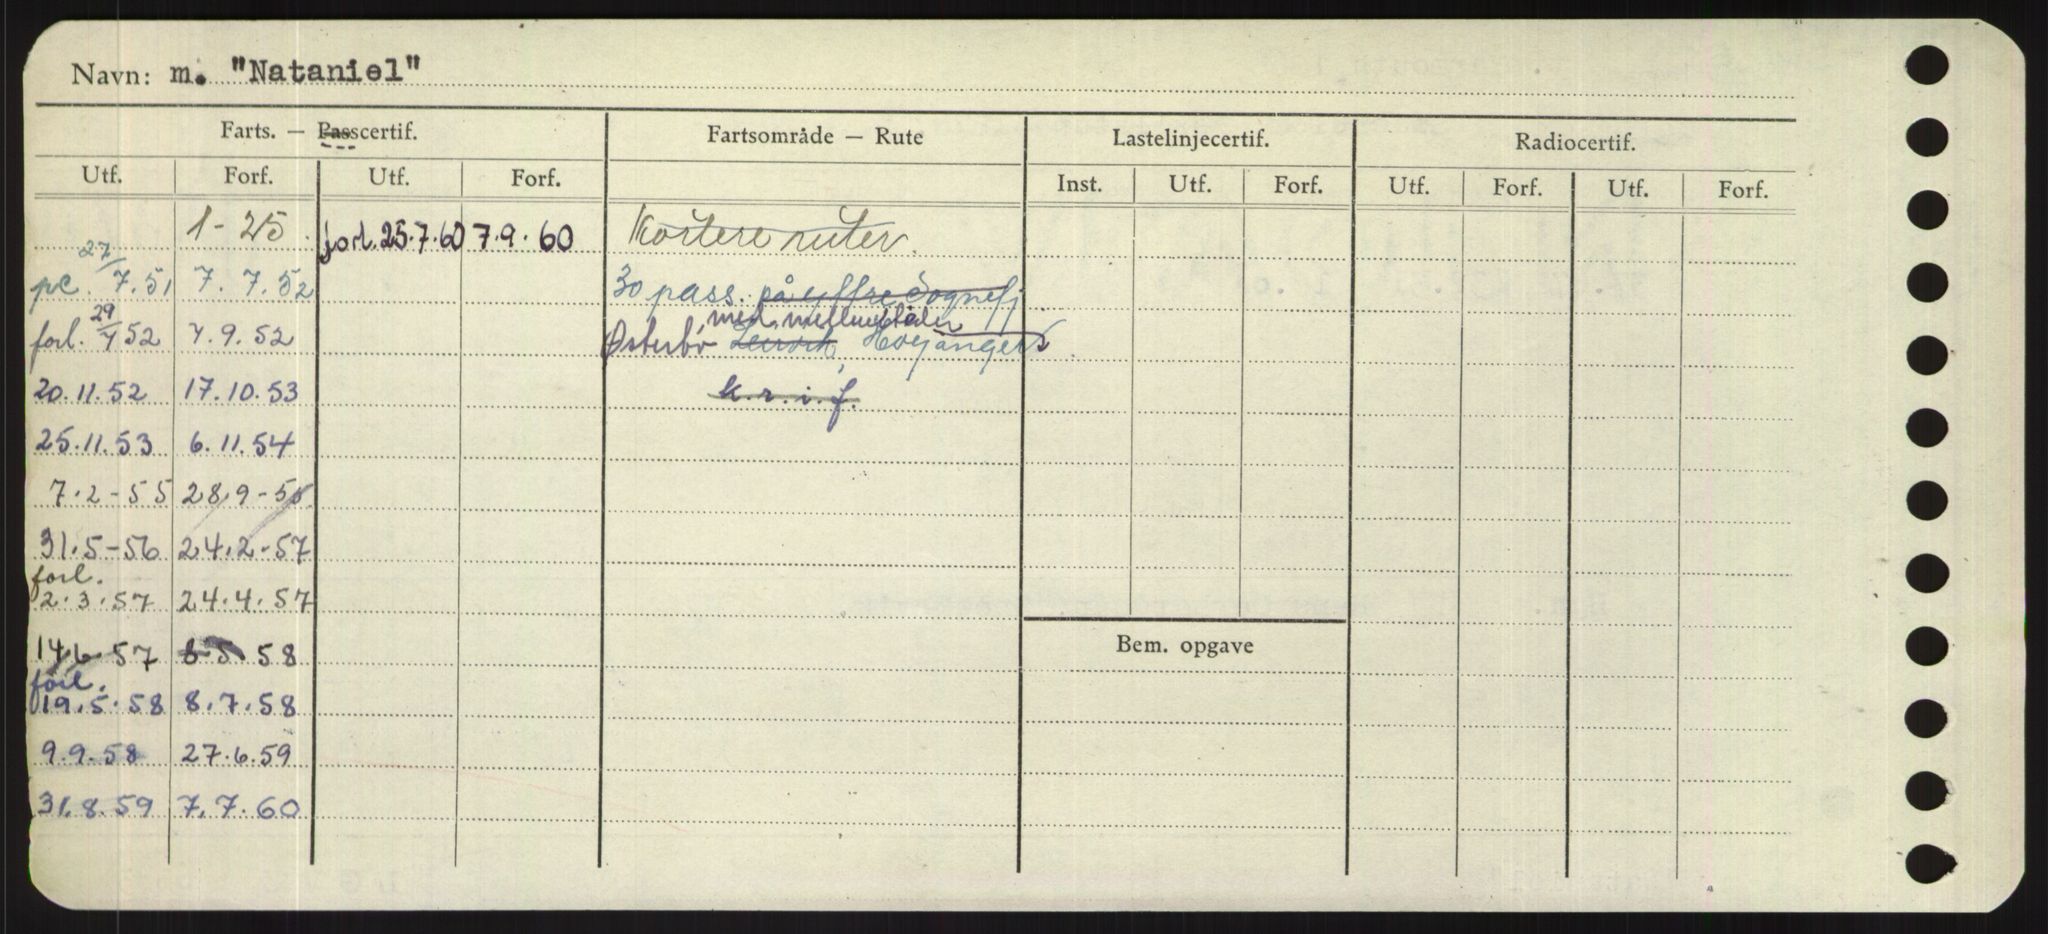 Navn: m. "Nataniel"
Farts. — Passcertif. Fartsområde — Rute Lastelinjecertif. Radiocertif.
Utf. Forf. Utf. Forf. Inst. Utf. Forf. Utf. Forf. Utf. Forf.
1-25. forl. 25.7.60 7.9.60 Kortere ruter.
pc. 27/7.51 7.7.52 30 pass. på yttre Sognefj
forl. 29/7 52 7.9.52 Østerbö med mellemsteder Höyanger
20.11.52 17.10.53 k.r.i.f.
25.11.53 6.11.54
7.2-55 28.9-55
31.5-56 24.2-57
forl.
2.3.57 24.4.57
14.6.57 8.5.58
Bem. opgave
forl.
19.5.58 8.7.58
9.9.58 27.6.59
31.8.59 7.7.60